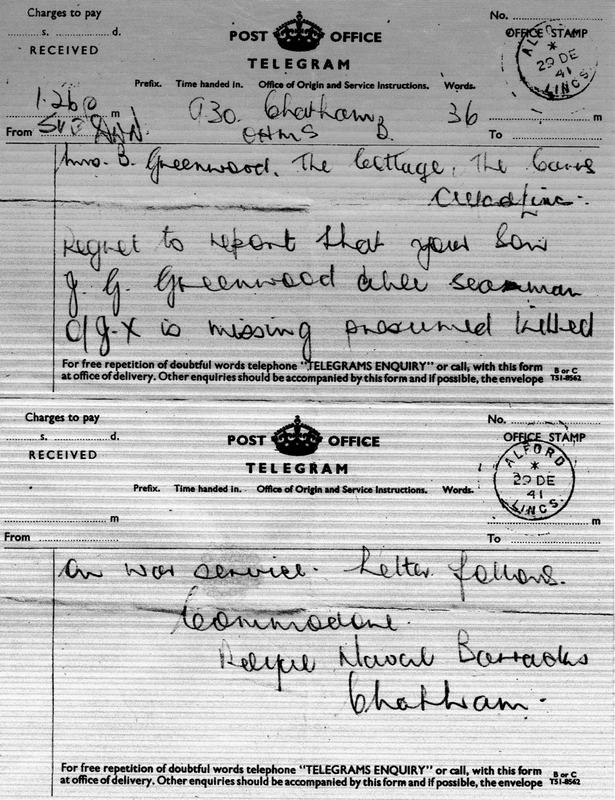 Charges to pay
s. d.
RECEIVED
POST OFFICE
TELEGRAM
No.
OFFICE STAMP
ALFORD
29 DE
41
LINCS.
Prefix. Time handed in. Office of Origin and Service Instructions. Words.
1.26 m
930. Chatham 36
From
OHMS B.
To
Mrs. B. Greenwood. The Cottage, The
Regret to report that your Son
J. G. Greenwood able seaman
is missing presumed killed
For free repetition of doubtful words telephone "TELEGRAMS ENQUIRY" or call, with this form
at office of delivery. Other enquiries should be accompanied by this form and if possible, the envelope
B or C
TS1-8562
Charges to pay
s. d.
RECEIVED
POST OFFICE
TELEGRAM
No.
OFFICE STAMP
ALFORD
29 DE
41
LINCS.
Prefix. Time handed in. Office of Origin and Service Instructions. Words.
m m
From To
on war service. Letter follows.
Commodore.
Naval Barracks
Chatham.
For free repetition of doubtful words telephone "TELEGRAMS ENQUIRY" or call, with this form
at office of delivery. Other enquiries should be accompanied by this form and if possible, the envelope
B or C
TS1-8562